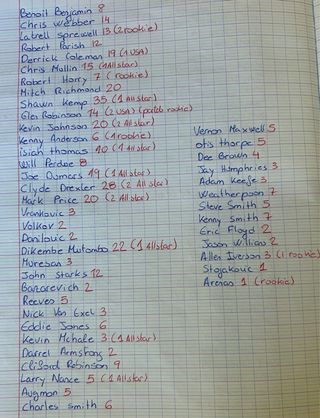 Benoit Benjamin 8
Chris Webber 14
Latrell sprewell 13 (2 rookie)
Robert Parish 12
Derrick Coleman 19 (1 USA)
Chris Mullin 15 (1 All star)
Robert Horry 7 (rookie)
Mitch Richmond 20
Shawn Kemp 35 (1 All star)
Glen Robinson 14 (2 USA) rookie)
Kevin Johnson 20 (2 All star)
Kenny Anderson 6 (1 rookie)
Isiah thomas 10 (1 All star)
Will Perdue 8
Joe Dumars 19 (1 All star)
Clyde Drexler 28 (2 All star)
Mark Price 20 (2 All star)
Vrankovic 3
Volkov 2
Danilovic 2
Dikembe Mutombo 22 (1 All star)
Muresan 3
John Starks 12
Banzarevich 2
Reeves 5
Nick Van Exel 3
Eddie Jones 6
Kevin Mchale 3 (1 All star)
Darrel Armstrong 2
Clifford Robinson 9
Larry Nance 5 (1 All star)
Augmon 5
Charles Smith 6
Vernon Maxwell 5
otis thorpe 5
Dee Brown 4
Jay Humphries 3
Adam Keefe 3
Weatherspoon 7
Steve Smith 5
Kenny Smith 7
Eric Floyd 2
Jason Williams 2
Allen Iverson 3 (1 rookie)
Stojakovic 1
Arenas 1 (rookie)